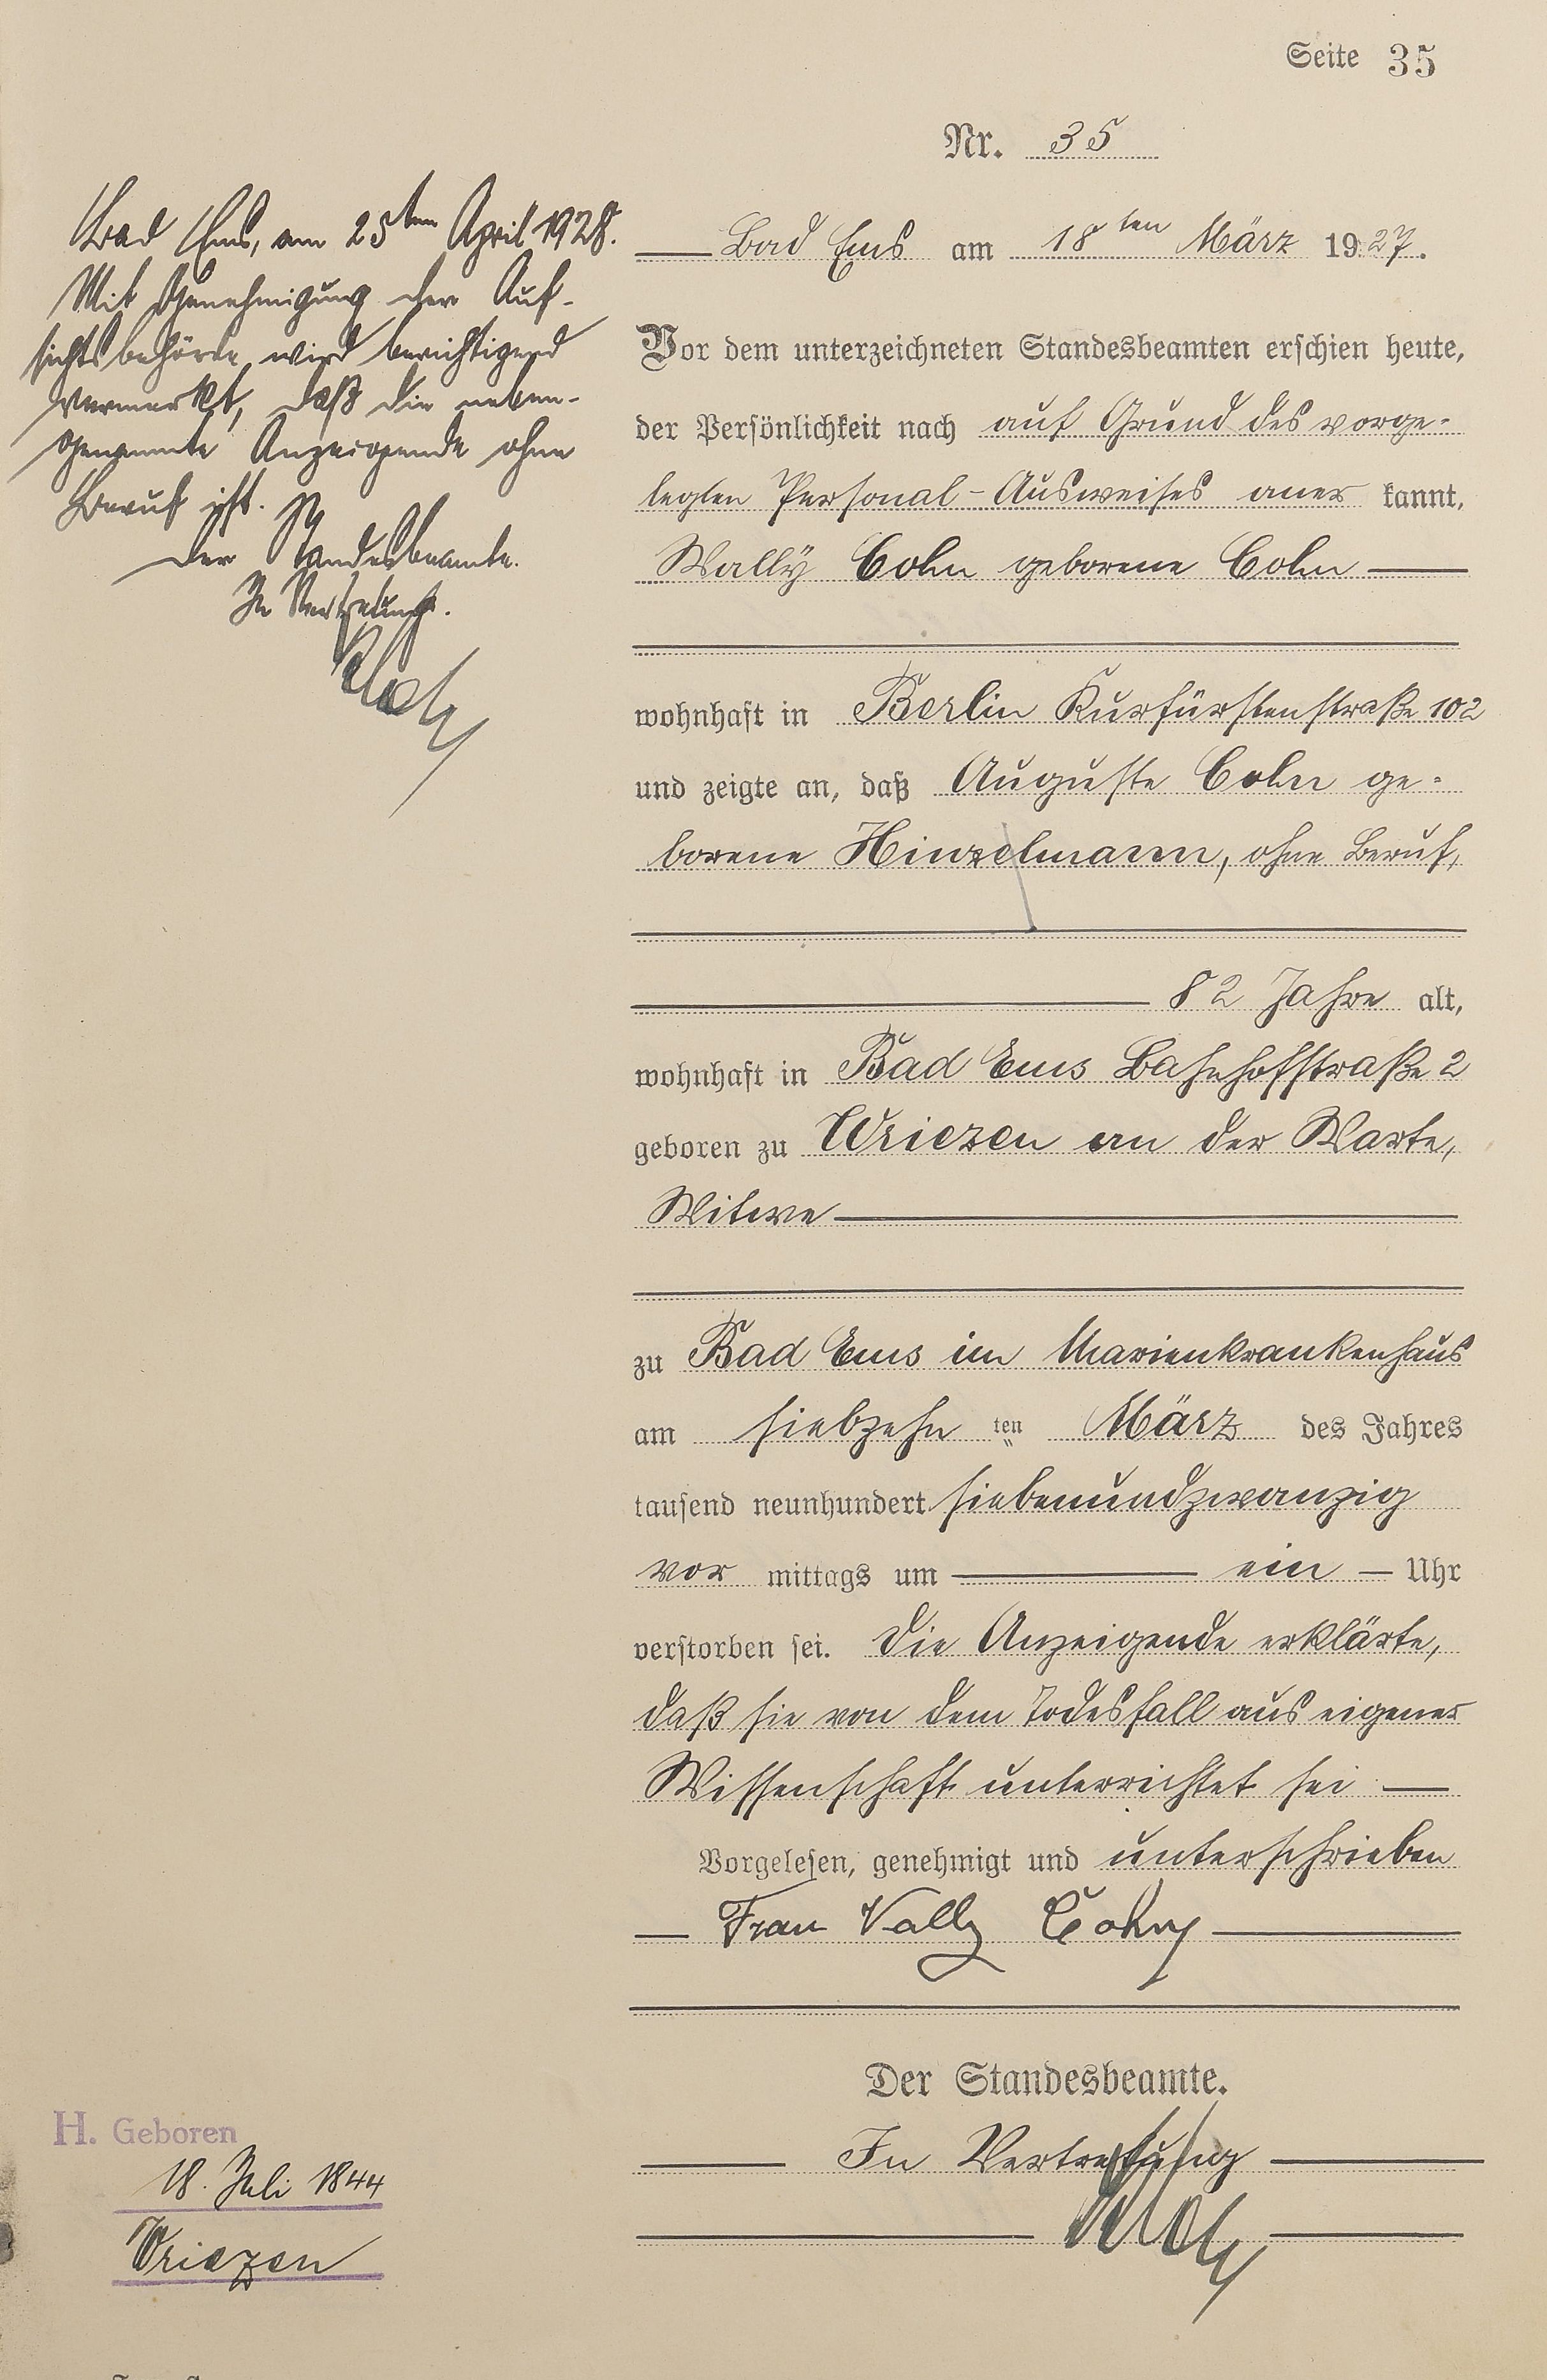 Seite 35
Nr. 35
Bad Ems, am 25ten April 1928.
Mit Genehmigung der Auf-
sichtsbehörde wird berichtigend
vermerkt, daß die neben-
genannte Anzeigende ohne
Beruf ist.
Der Standesbeamte.
In Vertretung.
Bad Ems am 18ten März 1927.
Vor dem unterzeichneten Standesbeamten erschien heute,
der Persönlichkeit nach auf Grund des vorge-
legten Personal-Ausweises aner kannt,
Wally Cohn geborene Cohn
wohnhaft in Berlin Kurfürstenstraße 102
und zeigte an, daß Auguste Cohn ge-
borene Hinzelmann, ohne Beruf,
82 Jahre alt,
wohnhaft in Bad Ems Bahnhofstraße 2
geboren zu Wriezen an der Warte,
Witwe
zu Bad Ems im Marienkrankenhaus
am siebzehn ten März des Jahres
tausend neunhundert siebenundzwanzig
vor mittags um ein Uhr
verstorben sei. Die Anzeigende erklärte,
daß sie von dem Todesfall aus eigener
Wissenschaft unterrichtet sei
Vorgelesen, genehmigt und unterschrieben
Frau Vally Cohn
Der Standesbeamte.
In Vertretung
H. Geboren
18. Juli 1844
Wriezen